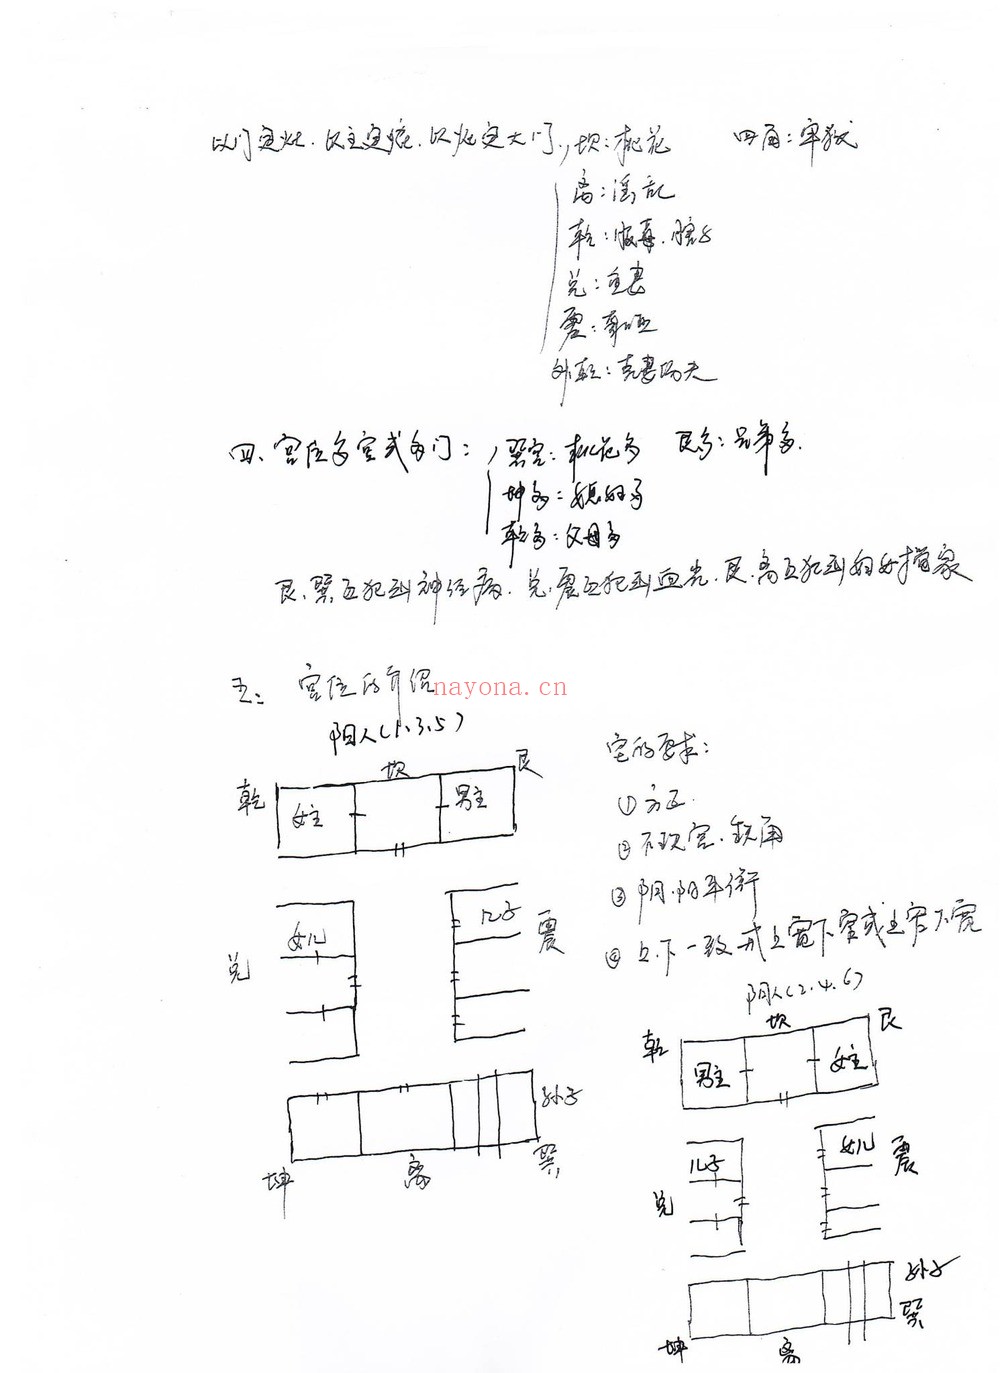 以门定灶.以主定 .以灶定大门, 坎:桃花 四角:牢狱
离:淫乱
乾:服毒.
兑:重妻
震:聋哑
外乾:克妻伤夫
四、宫位多室或多门: 巽宫:桃花多 艮多:兄弟多.
坤多:媳妇多
乾多:父母多
艮.巽互犯到神经病.兑.震互犯到血光.艮.离互犯到妇女 家
五: 宫位的介绍
nayona.cn
阳人(1.3.5)
乾 坎 艮
女主 男主
兑 女儿 儿子 震
孙子
坤 离 巽
宅的要求:
①方正.
②不 宫.缺角
③阴.阳平衡
④上.下一致或上宽下窄或上窄下宽
阴人(2.4.6)
乾 坎 艮
男主 女主
兑 儿子 女儿 震
孙子
坤 离 巽